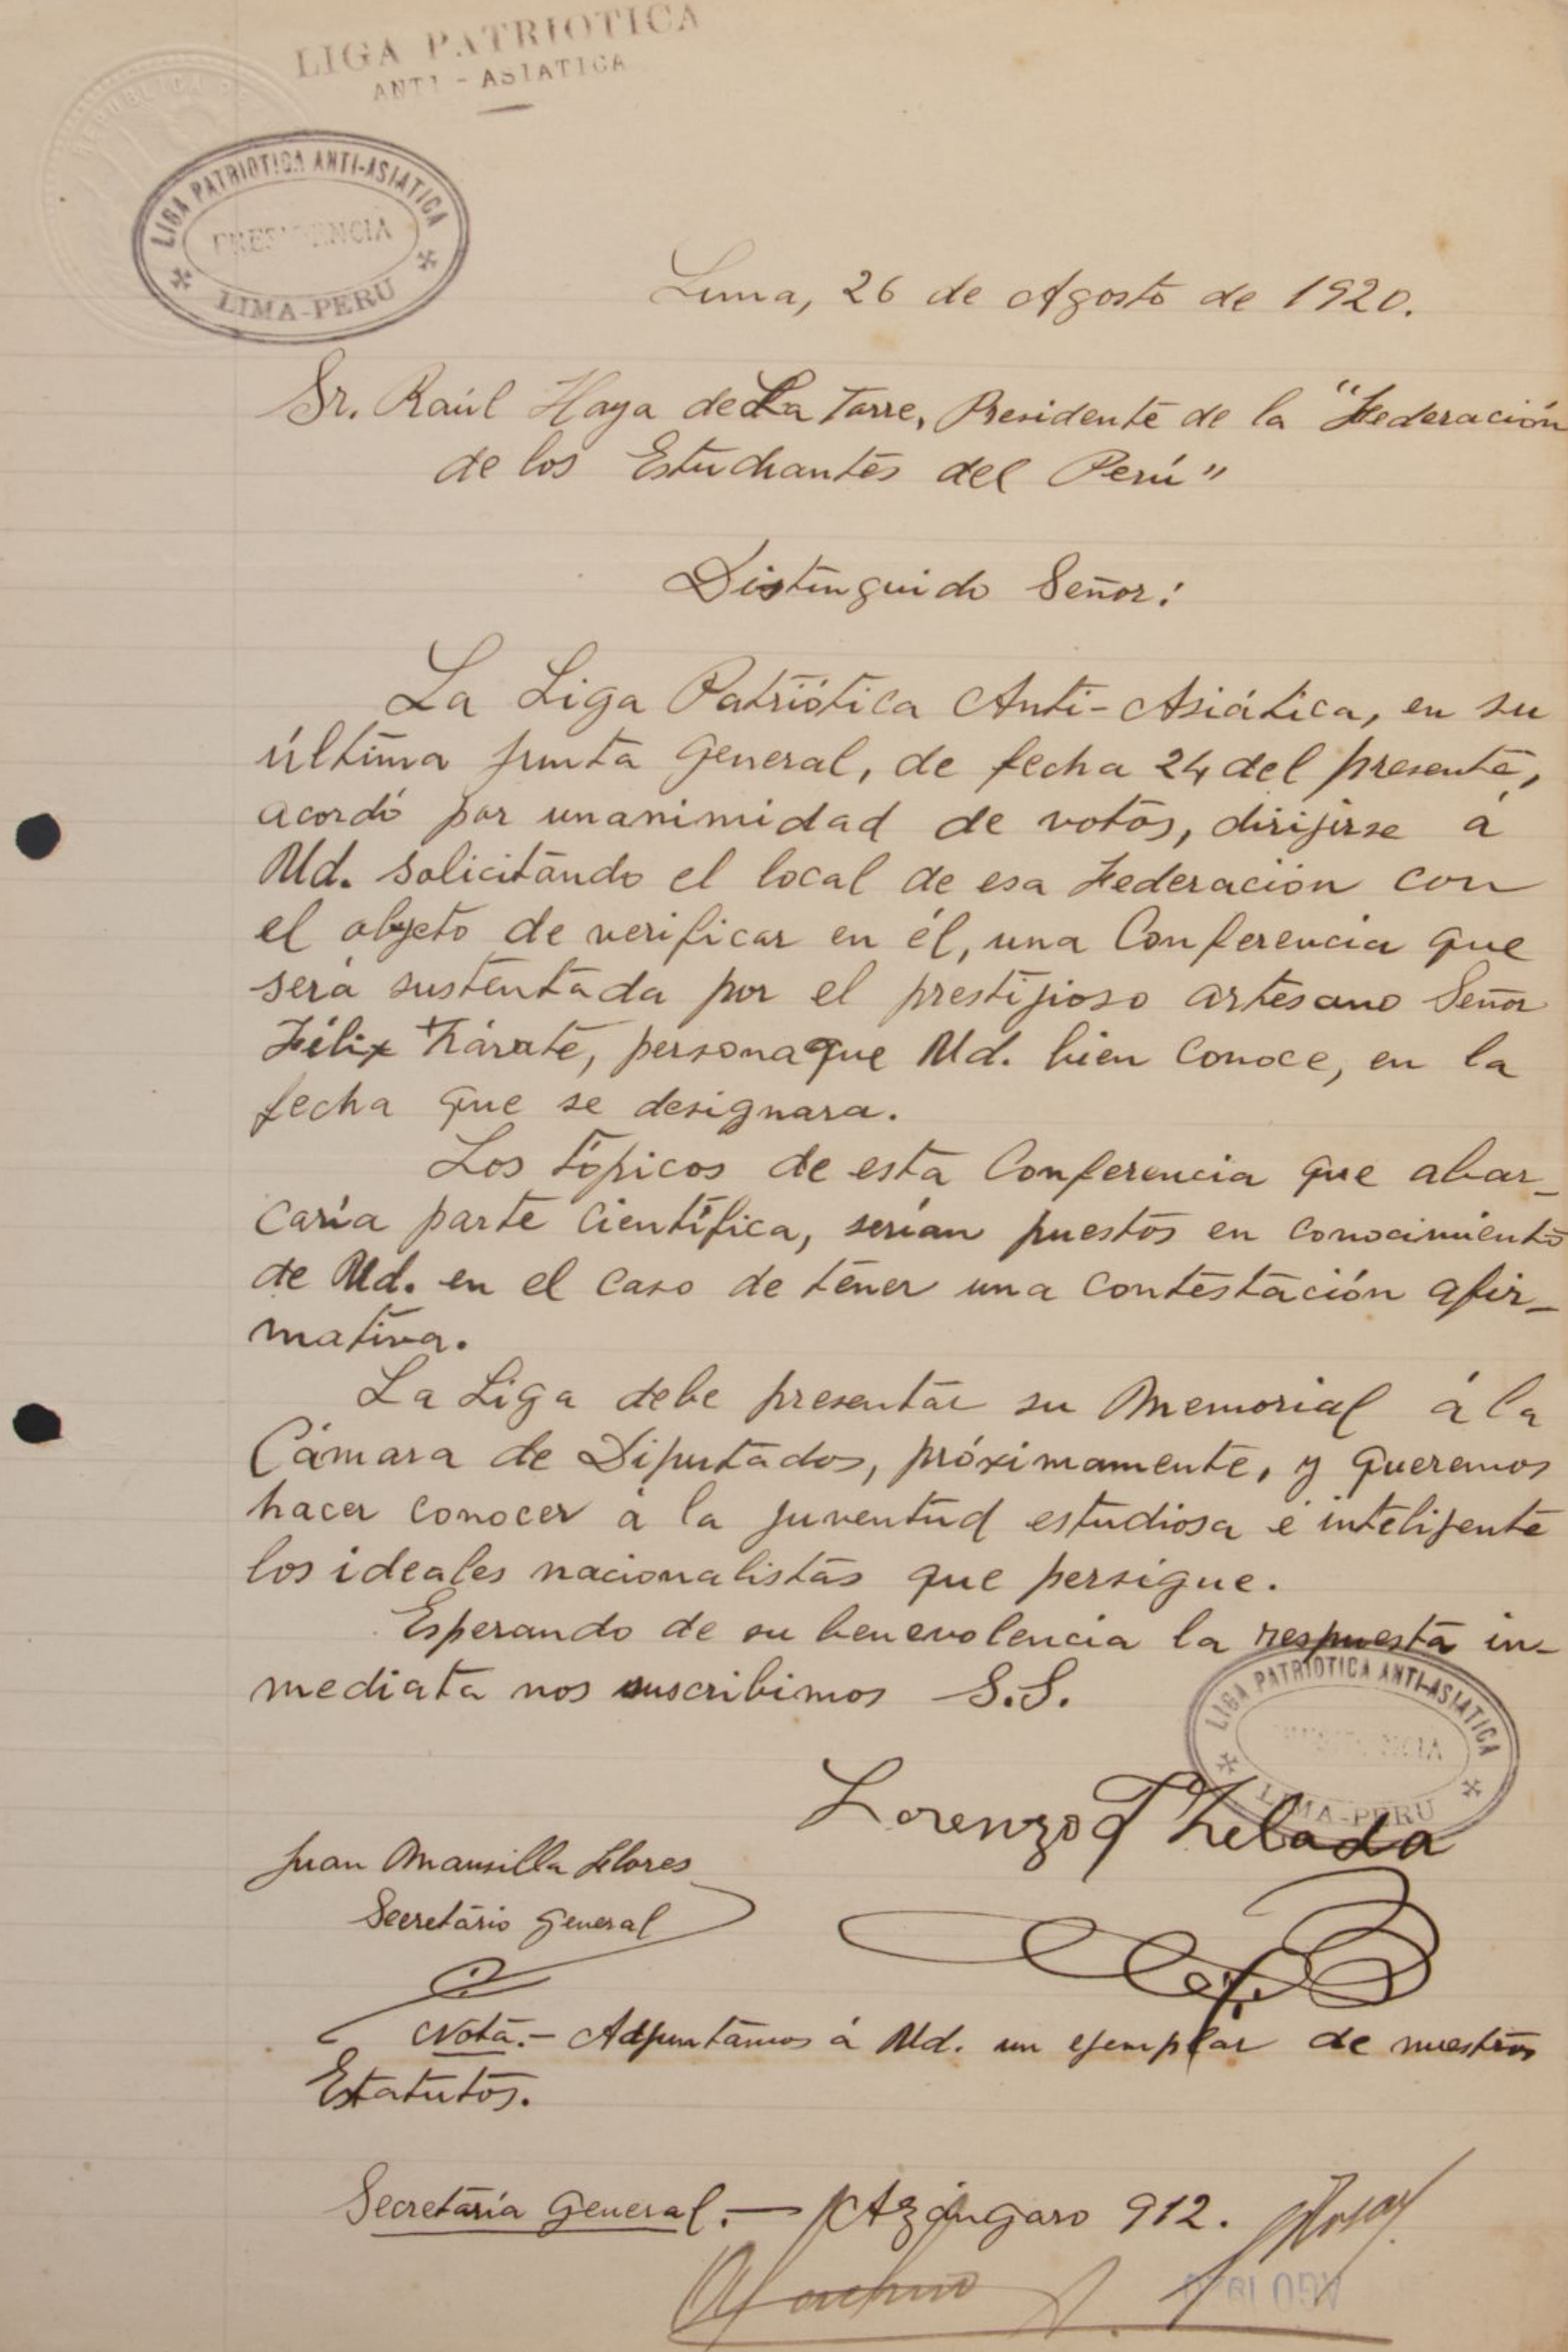 LIGA PATRIOTICA
ANTI-ASIATICA
LIGA PATRIOTICA ANTI-ASIATICA
PRESIDENCIA
LIMA-PERU
Lima, 26 de Agosto de 1920.
Sr. Raúl Haya de La Torre, Presidente de la "Federación
de los Estudiantes del Perú"
Distinguido Señor:
La Liga Patriótica Anti-Asiática, en su
última junta General, de fecha 24 del presente,
acordó por unanimidad de votos, dirijirse á
Ud. solicitando el local de esa Federación con
el objeto de verificar en él, una Conferencia que
será sustentada por el prestijioso artesano Señor
Félix Zárate, persona que Ud. bien conoce, en la
fecha que se designara.
Los tópicos de esta Conferencia que abar-
caría parte científica, serían puestos en conocimiento
de Ud. en el caso de tener una contestación afir-
mativa.
La Liga debe presentar su Memorial á la
Cámara de Diputados, próximamente, y queremos
hacer conocer á la juventud estudiosa é intelijente
los ideales nacionalistas que persigue.
Esperando de su benevolencia la respuesta in-
mediata nos suscribimos S.S.
LIGA PATRIOTICA ANTI-ASIATICA
PRESIDENCIA
LIMA-PERU
Lorenzo Zelada
Juan Mansilla Flores
Secretario General
Nota.- Adjuntamos á Ud. un ejemplar de nuestros
Estatutos.
Secretaría General.- Azángaro 912.